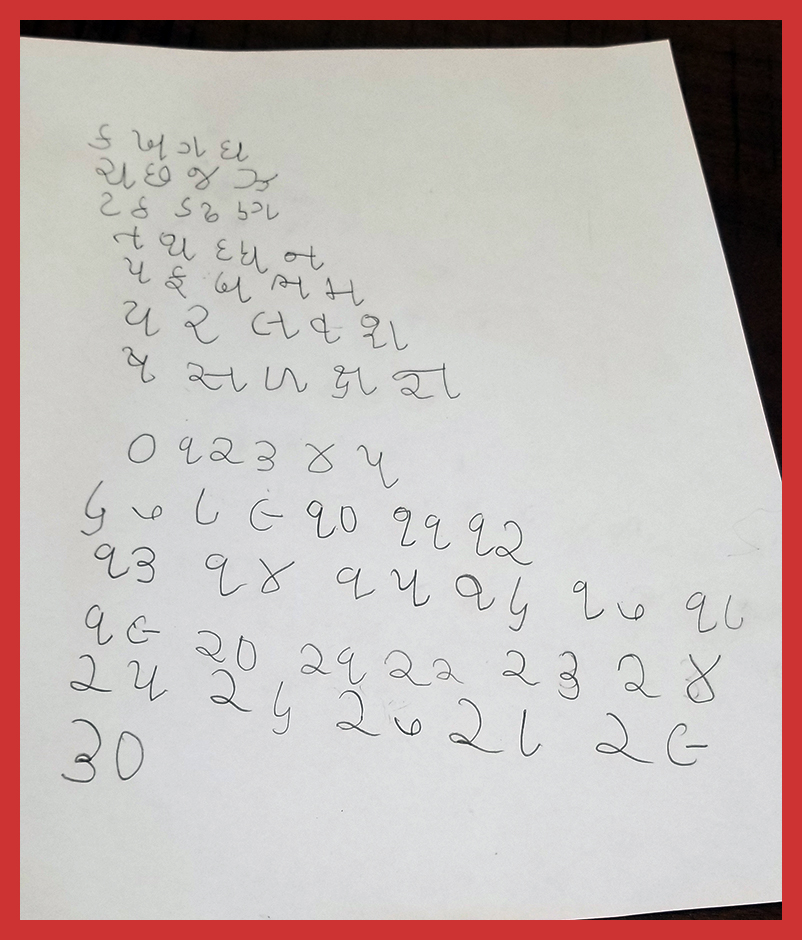 ક ખ ગ ઘ
ચ છ જ ઝ
ટ ઠ ડ ઢ ણ
ત થ દ ધ ન
પ ફ બ ભ મ
ય ર લ વ શ
ષ સ ળ ક્ષ જ્ઞ
૦ ૧ ૨ ૩ ૪ ૫
૬ ૭ ૮ ૯ ૧૦ ૧૧ ૧૨
૧૩ ૧૪ ૧૫ ૧૬ ૧૭ ૧૮
૧૯ ૨૦ ૨૧ ૨૨ ૨૩ ૨૪
૨૫ ૨૬ ૨૭ ૨૮ ૨૯
૩૦